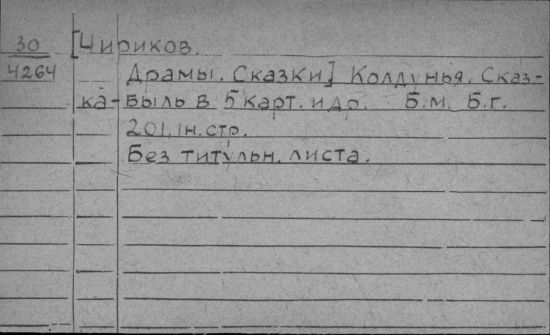 30 [Чириков.
4264 Драмы. Сказки] Колдунья. Сказ-
ка-быль в 5 карт. и др. Б.м. Б.г.
201, 1н. стр.
Без титульн. листа.